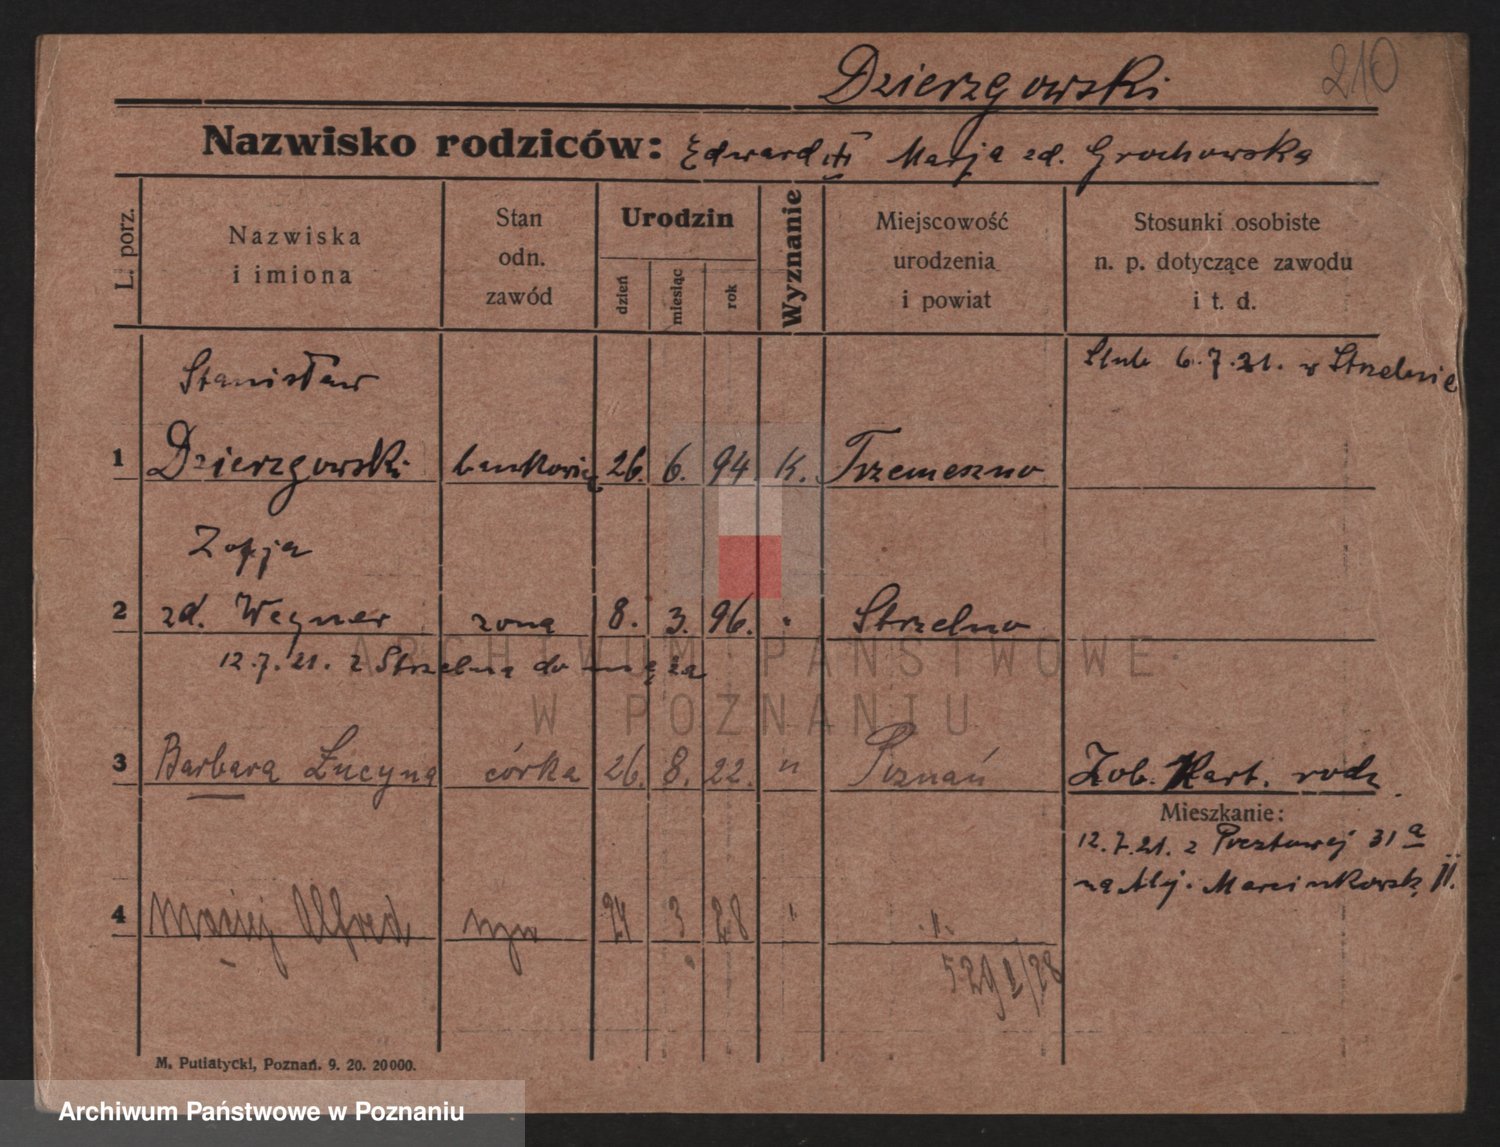 Dzierzgowski 210
Nazwisko rodziców: Edward Marja zd. Grochowska
L. porz.
Nazwiska
i imiona
Stan
odn.
zawód
Urodzin
dzień
miesiąc
rok
Wyznanie
Miejscowość
urodzenia
i powiat
Stosunki osobiste
n. p. dotyczące zawodu
i t. d.
Stanisław
Ślub 6.7.21. w Strzelnie
1 Dzierzgowski bankowiec 26. 6. 94 K. Trzemeszno
Zofja
2 zd. Wegner żona 8. 3. 96. " Strzelno
12.7.21. z Strzelna do męża
3 Barbara Lucyna córka 26. 8. 22. " Poznań Zob. Kart. rodz.
Mieszkanie:
12.7.21. z Pocztowej 31a
na Alej. Marcinkowsk. 11.
4 Maciej Alfred syn 24 3 28 " "
5292/28
M. Putiatycki, Poznań. 9. 20. 20000.
ARCHIWUM PAŃSTWOWE
W POZNANIU
Archiwum Państwowe w Poznaniu